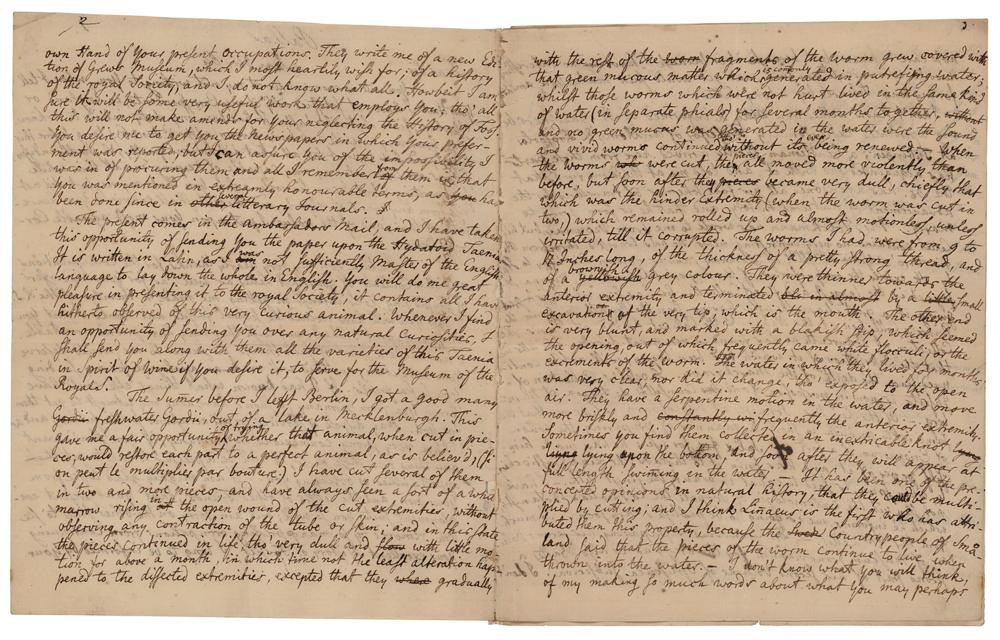 2
own Hand of Your present occupations. They write me of a new Edi-
tion of Grew's Museum, which I most heartily wish for; of a history
of the royal Society, and I do not know what all. Howbeit I am
sure it will be some very useful work that employs You; tho' all
this will not make amends for Your neglecting the History of Fos.
You desire me to get you the news papers in which Your prefer-
ment was reported; but I can assure You of the impossibility I
was in of procuring them and all I remember from them is, that
You was mentioned in extreamly honourable terms, as You has
been done since in other Litterary Journals.
The present comes in the Ambassadors Mail, and I have taken
this opportunity of sending You the paper upon the Hydatoid Taenia
It is written in Latin, as I was not sufficiently Master of the english
language to lay down the whole in English. You will do me great
pleasure in presenting it to the royal Society, it contains all I have
hitherto observed of this very curious animal. Whenever I find
an opportunity of sending You over any natural Curiosities, I
shall send You along with them all the varieties of this Taenia
in Spirit of wine if You desire it, to serve for the Museum of the
Royals.
The Sumer before I left Berlin, I got a good many
Gordii freshwater Gordii, out of a lake in Mecklenburgh. This
gave me a fair opportunity of trying whether that animal, when cut in pie-
ces, would restore each part to a perfect animal, as is believ'd, (si
on peut le multiplier par bouture) I have cut several of them
in two and more pieces, and have always seen a sort of a white
marrow rising in the open wound of the cut extremities, without
observing any contraction of the tube or skin; and in this state
the pieces continued in life, tho' very dull and slow with little mo-
tion for above a month, in which time not the least alteration hap-
pened to the dissected extremities, excepted that they where gradually
3
with the rest of the worm fragments of the worm grew covered with
that green mucous matter which is commonly generated in putrefying water;
whilst those worms which were not hurt lived in the same kind
of water (in separate phials) for several months together, without
and no green mucus was generated in the water were the sound
and vivid worms continued without its being renewed. — When
the worms were cut, the pieces all moved more violently than
before, but soon after they pieces became very dull, chiefly that
which was the hinder Extremity (when the worm was cut in
two,) which remained rolled up and almost motionless, unless
irritated, till it corrupted. The worms I had were from 9 to
12 Inches long, of the thickness of a pretty strong thread, and
of a yellowish brownish grey colour. They were thinner towards the
anterior extremity and terminated by a little small
excavation on the very tip, which is the mouth. The other end
is very blunt, and marked with a blakish stip, which seemed
the opening, out of which frequently came white flocculi, or the
excrements of the worm. The waters in which they lived for months
was very clear, nor did it change, tho' exposed to the open
air. They have a serpentine motion in the water, and move
more briskly and constantly wi frequently the anterior extremity.
Sometimes you find them collected in an inextricable knot
lying upon the bottom, and soon after they will appear at
full length swiming in the water. It has been one of the pre-
concepted opinions in natural history, that they could be multi-
plied by cutting; and I think Linaeus is the first who has attri-
buted them this property, because the Swed Country people of Små-
land said that the pieces of the worm continue to live when
thrown into the water. — I don't know what you will think,
of my making so much words about what You may perhaps